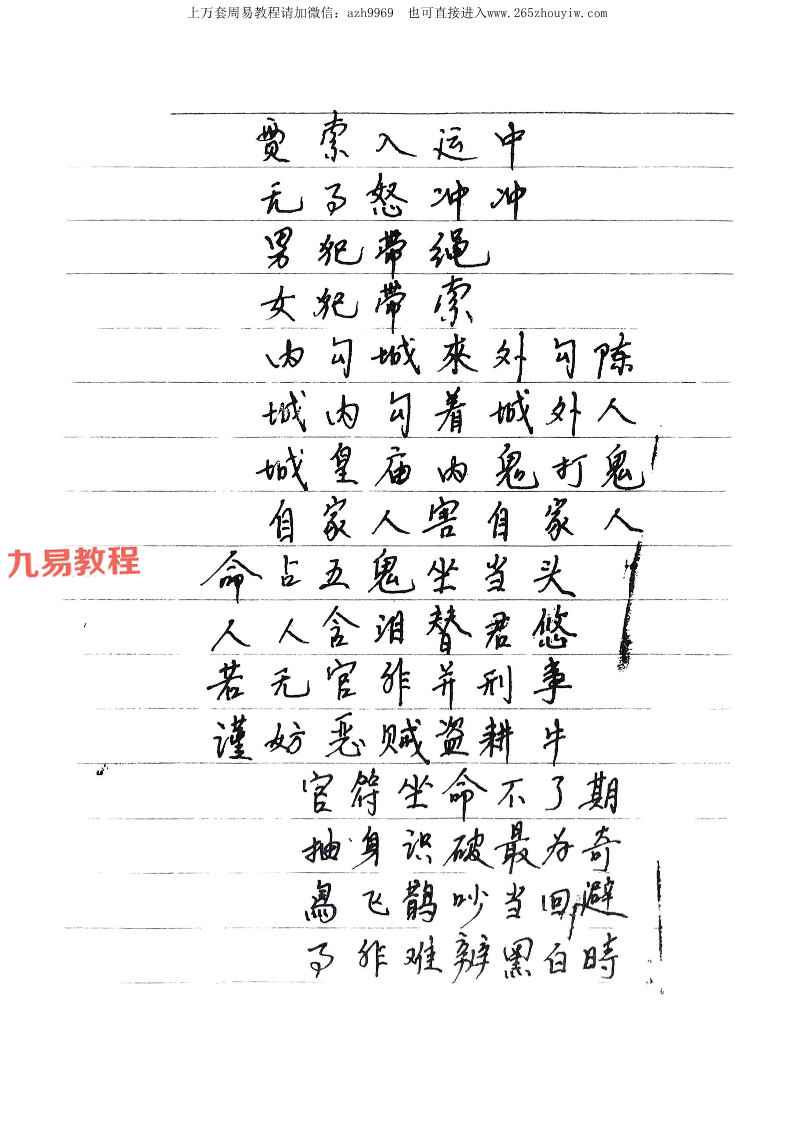 上万套周易教程请加微信：azh9969 也可直接进入www.265zhouyiw.com
贾索入运中
无了怒冲冲
男犯带绳
女犯带索
内勾城來外勾陈
城内勾着城外人
城皇庙内鬼打鬼
自家人害自家人
九易教程
命占五鬼坐当头
人人含泪替君悠
若无官非并刑事
谨妨恶贼盗耕牛
官符坐命不了期
抽身识破最为奇
鸟飞鹊吵当回避
非难辨黑白時